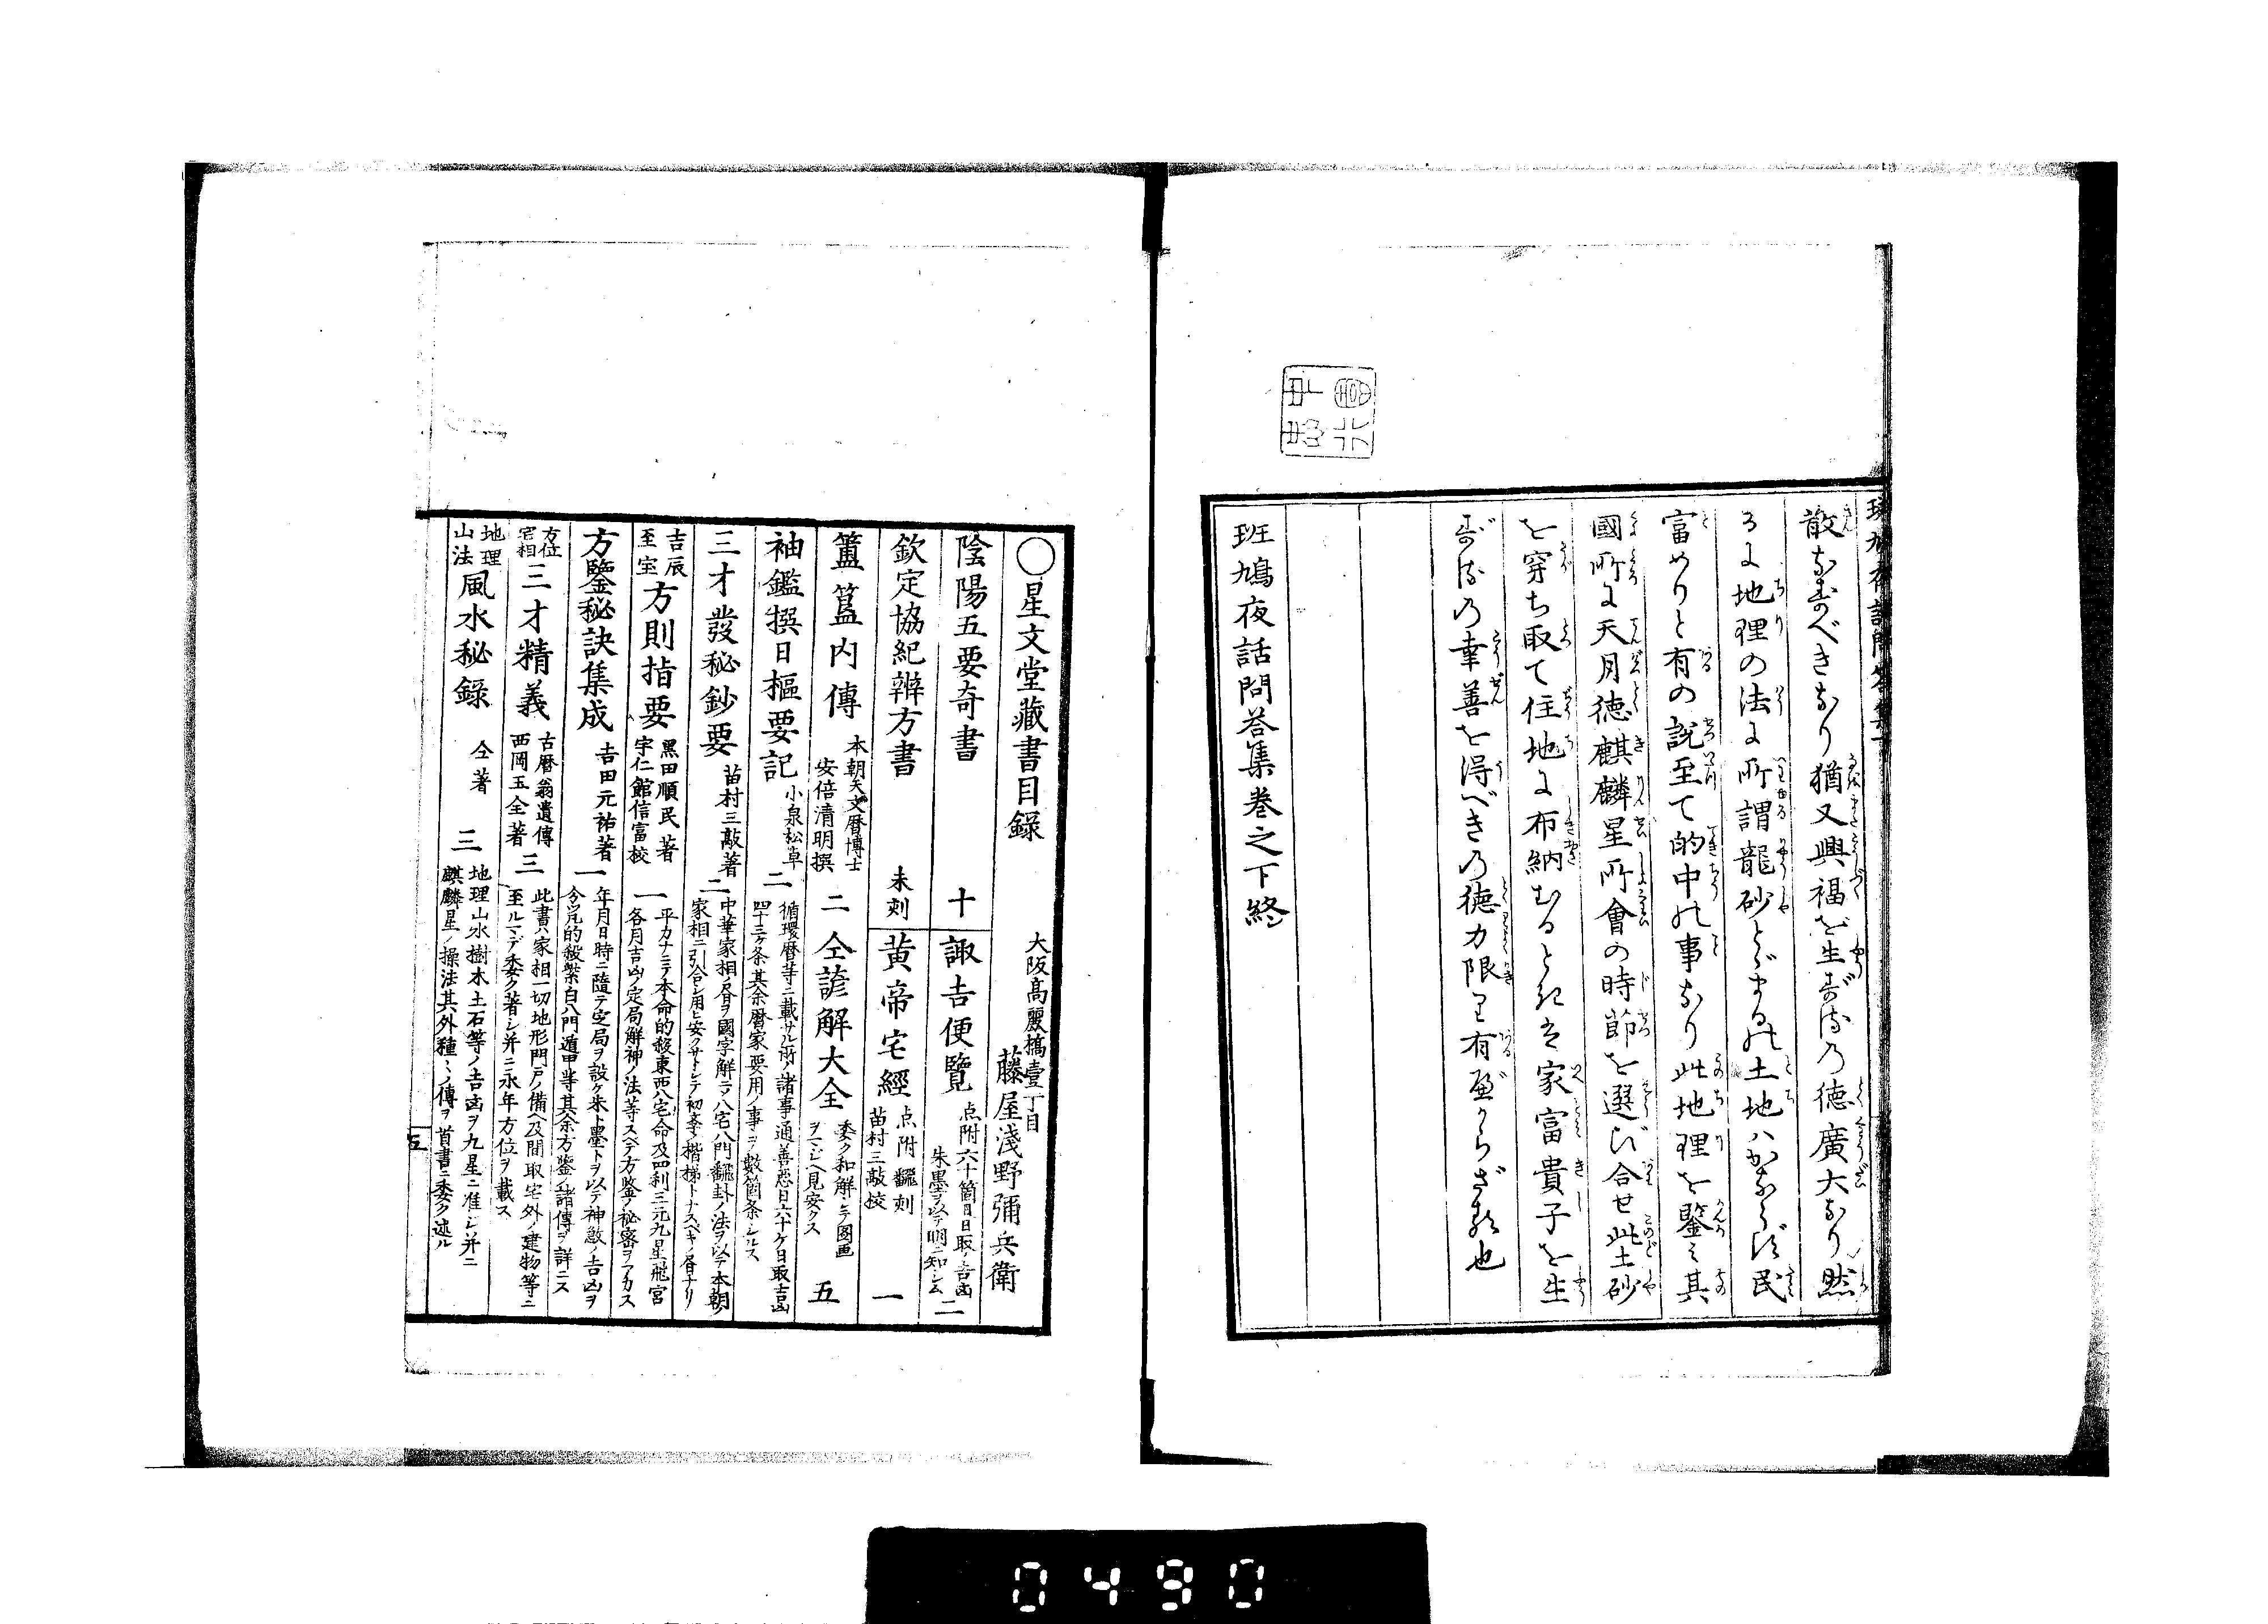 散なすべきなり猶又興福を生ずるの徳廣大なり然
るに地理の法に所謂龍砂とゞまるの土地ハかならず民
富めりと有の説至て的中の事なり此地理を鑒ミ其
國所に天月徳麒麟星所會の時節を選び合せ此土砂
を穿ち取て住地に布納むるときは家富貴子を生
ずるの幸善を得べきの徳力限り有べからざる也
班鳩夜話問答集巻之下終
◯星文堂藏書目錄
大阪高麗橋壹丁目
藤屋淺野彌兵衛
陰陽五要奇書 十
諏吉便覽 点附六十箇日日取ノ吉凶
朱墨ヲ以テ明ニ知シム 二
欽定協紀辨方書 未刻
黄帝宅經 点附翻刻
苗村三敲校 一
簠簋内傳 本朝天文暦博士
安倍清明撰 二
仝諺解大全 委ク和解シテ圖画
ヲマジヘ見安クス 五
袖鑑撰日樞要記 小泉松卓 二
循環暦等ニ載サル所ノ諸事通善悪日六十ケ日取吉凶
四十三ケ条其余暦家要用ノ事ヲ數箇条シルス
三才發秘鈔要 苗村三敲著 二
中華家相ノ書ヲ國字解ニテ八宅八門翻卦ノ法ヲ以テ本朝
家相ニ引合シ用ヒ安クサトシテ初学ノ楷梯トナスベキノ書ナリ
吉辰
至宝
方則指要 黒田順民著
宇仁館信富校 一
平カナニテ本命的殺東西八宅命及四利三元九星飛宮
各月吉凶ノ定局解神ノ法等スベテ方鑒ノ秘密ヲアカス
方鑒秘訣集成 吉田元祐著 一
年月日時ニ隨テ定局ヲ設ケ朱ト墨トヲ以テ神殺ノ吉凶ヲ
今ツ尤的殺紫白八門遁甲等其余方鑒ノ諸傳ヲ詳ニス
方位
宅相
三才精義 古暦翁遺傳
西岡玉全著 三
此書ハ家相一切地形門戸ノ備ヘ及間取宅外ノ建物等ニ
至ルマデ委ク著シ并ニ永年方位ヲ載ス
地理
山法
風水秘錄 仝著 三
地理山水樹木土石等ノ吉凶ヲ九星ニ准ジ并ニ
麒麟星ノ操法其外種々ノ傳ヲ首書ニ委ク述ル
五
0490